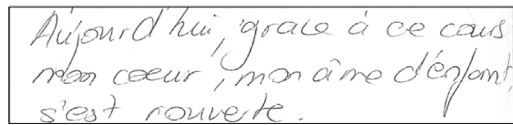 Aujourd'hui, grace à ce cours
mon coeur, mon âme d'enfant,
s'est rouverte.